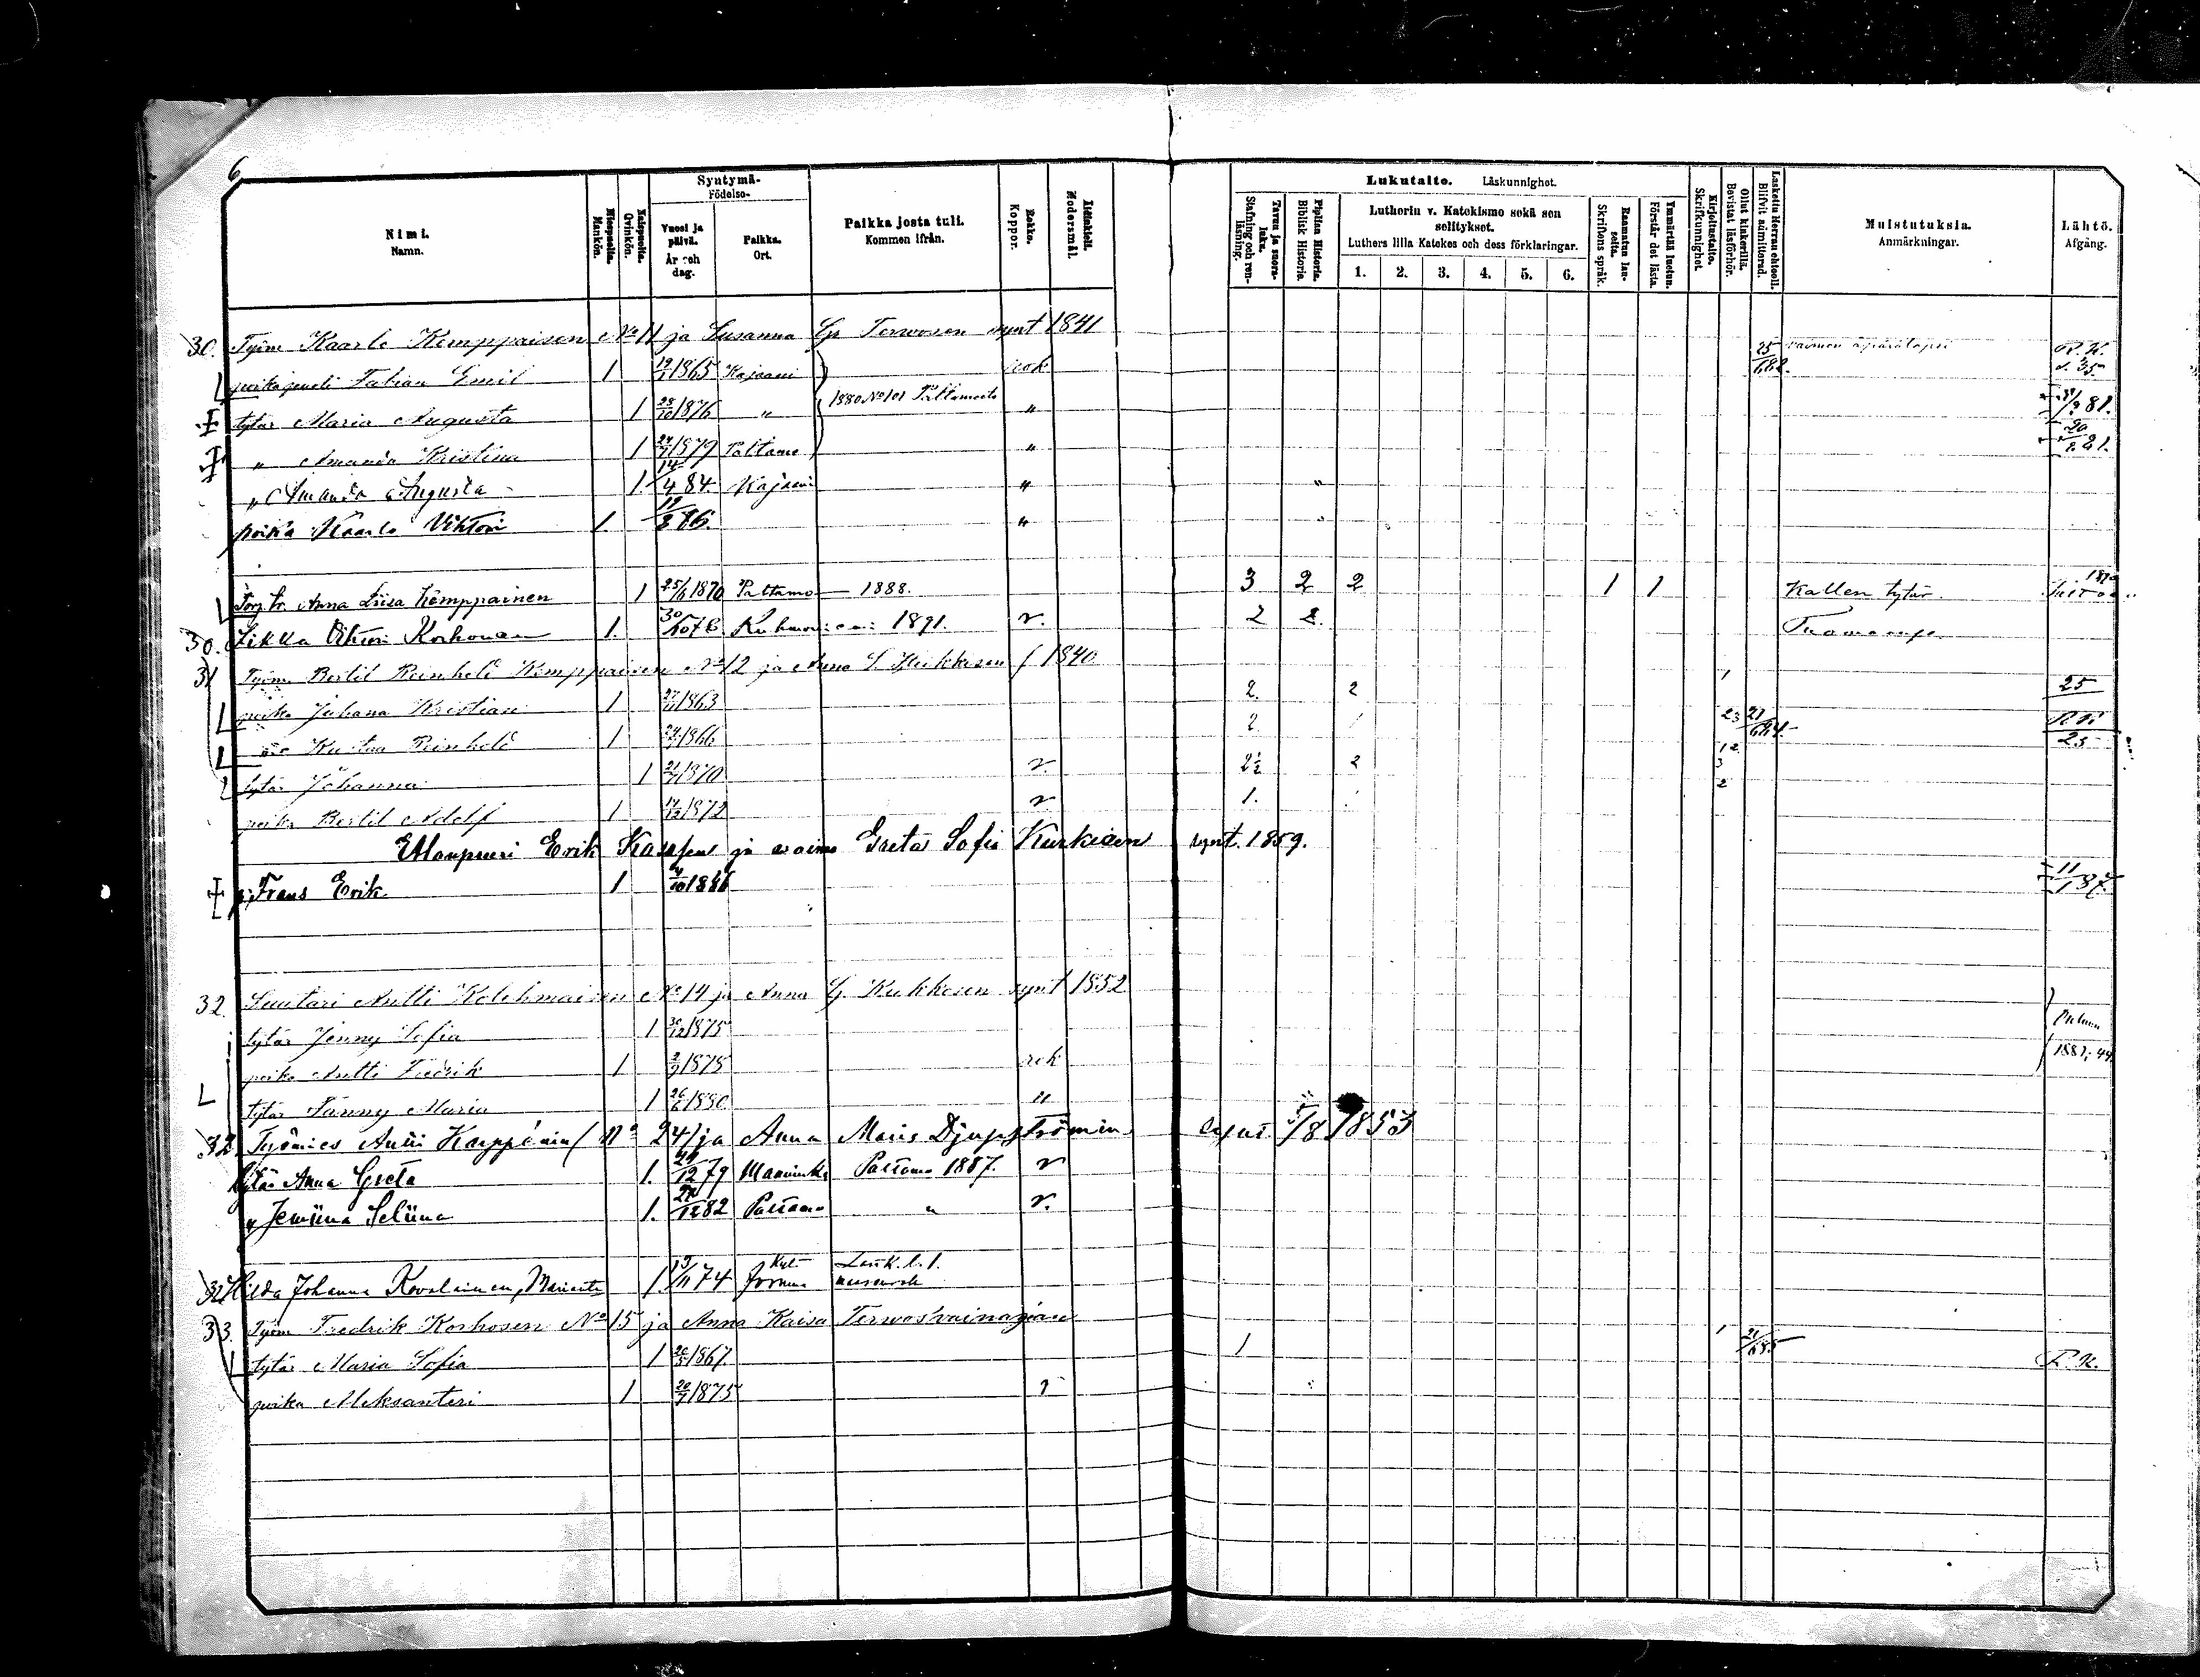 6
Nimi. Namn.
Miespuolia. Mankön.
Vaispuolia. Qvinkön.
Syntymä- Födelse-
Vuosi ja päivä. År och dag.
Paikka. Ort.
Paikka josta tuli. Kommen ifrån.
Rokko. Koppor.
Äidinkieli. Modersmål.
Lukutaito. Läskunnighet.
Tavuu ja suora- luku. Stafning och ren- läsning.
Piplian Historia. Biblisk Historie.
Lutherin v. Katekismo sekä sen selitykset.
Luthers lilla Katekes och dess förklaringar.
1. 2. 3. 4. 5. 6.
Raamatun lau- seita. Skriftens språk.
Ymmärtää luetun. Förstår det lästa.
Kirjoitustaito. Skrifkunnighet.
Ollut kinkerillä. Bevistat läsförhör.
Laskettu Herran ehtoolL. Blifvit admitterad.
Muistutuksia. Anmärkningar.
Lähtö. Afgång.
30. Työm Kaarle Kemppaisen No 11 ja Susanna Gr Terwosen synt 1841
poikapuoli Fabian Emil 1 19/1 1865 Kajaani rok 25/6 82. vaimon äpärälapsi R. K. s. 35
tytär Maria Augusta 1 28/10 1876 " 1880 No 101 Paltamosta " 81.
" Amanda Kristina 1 24/7 1879 Paltamo " 20/2 81.
" Amanda Augusta 1. 14/4 84. Kajaani " "
poika Kaarlo Viktori 1 19/8 86. " "
Anna Liisa Kemppainen 1 25/6 1870 Paltamo 1888. 3 2 2 1 1 Kallen tytär 1890
30. Kikka Viktori Korhonen 1. 30/10 76 1891. r. 2 2.
31 Työm Bertil Reinhold Kemppaisen No 12 ja Anna L Heikkisen s 1840
poika Juhana Kristian 1 27/11 1863 2. 2 1 25
Kustaa Reinhold 1 24/7 1866 2. 23 21/6 84 RK 25
tytär Johanna 1 21/7 1870 r. 2½ 2 12 3
poika Bertil Adolf 1 14/12 1872 r 1. 2
Erik Karppisen ja vaimo Greta Sofia Kurkisen synt. 1859.
p. Frans Erik 1 4/10 1886 11/1 87.
32. Suutari Antti Kolehmaisen No 14 ja Anna G. Kukkosen synt 1852
tytär Jenny Sofia 1 30/12 1875
poika Antti Fredrik 1 2/9 1878 rok 1881: 44
tytär Fanny Maria 1 26/6 1880 "
32 Työmies Antti Karppinin No 24 ja Anna Maria Djupströmin synt. 5/8 1853
tytär Anna Greta 1. 24/12 79 Paltamo 1887. r
" Jemiina Seliina 1. 24/12 82 Paltamo " r.
32 Hilda Johanna Kovalainen, 1. 13/11 74
33. Työm Fredrik Korhosen No 15 ja Anna Kaisa Terwosvainajan
tytär Maria Sofia 1 26/5 1867 1 1 21/6 85 R. K.
poika Aleksanteri 1 20/7 1875 r